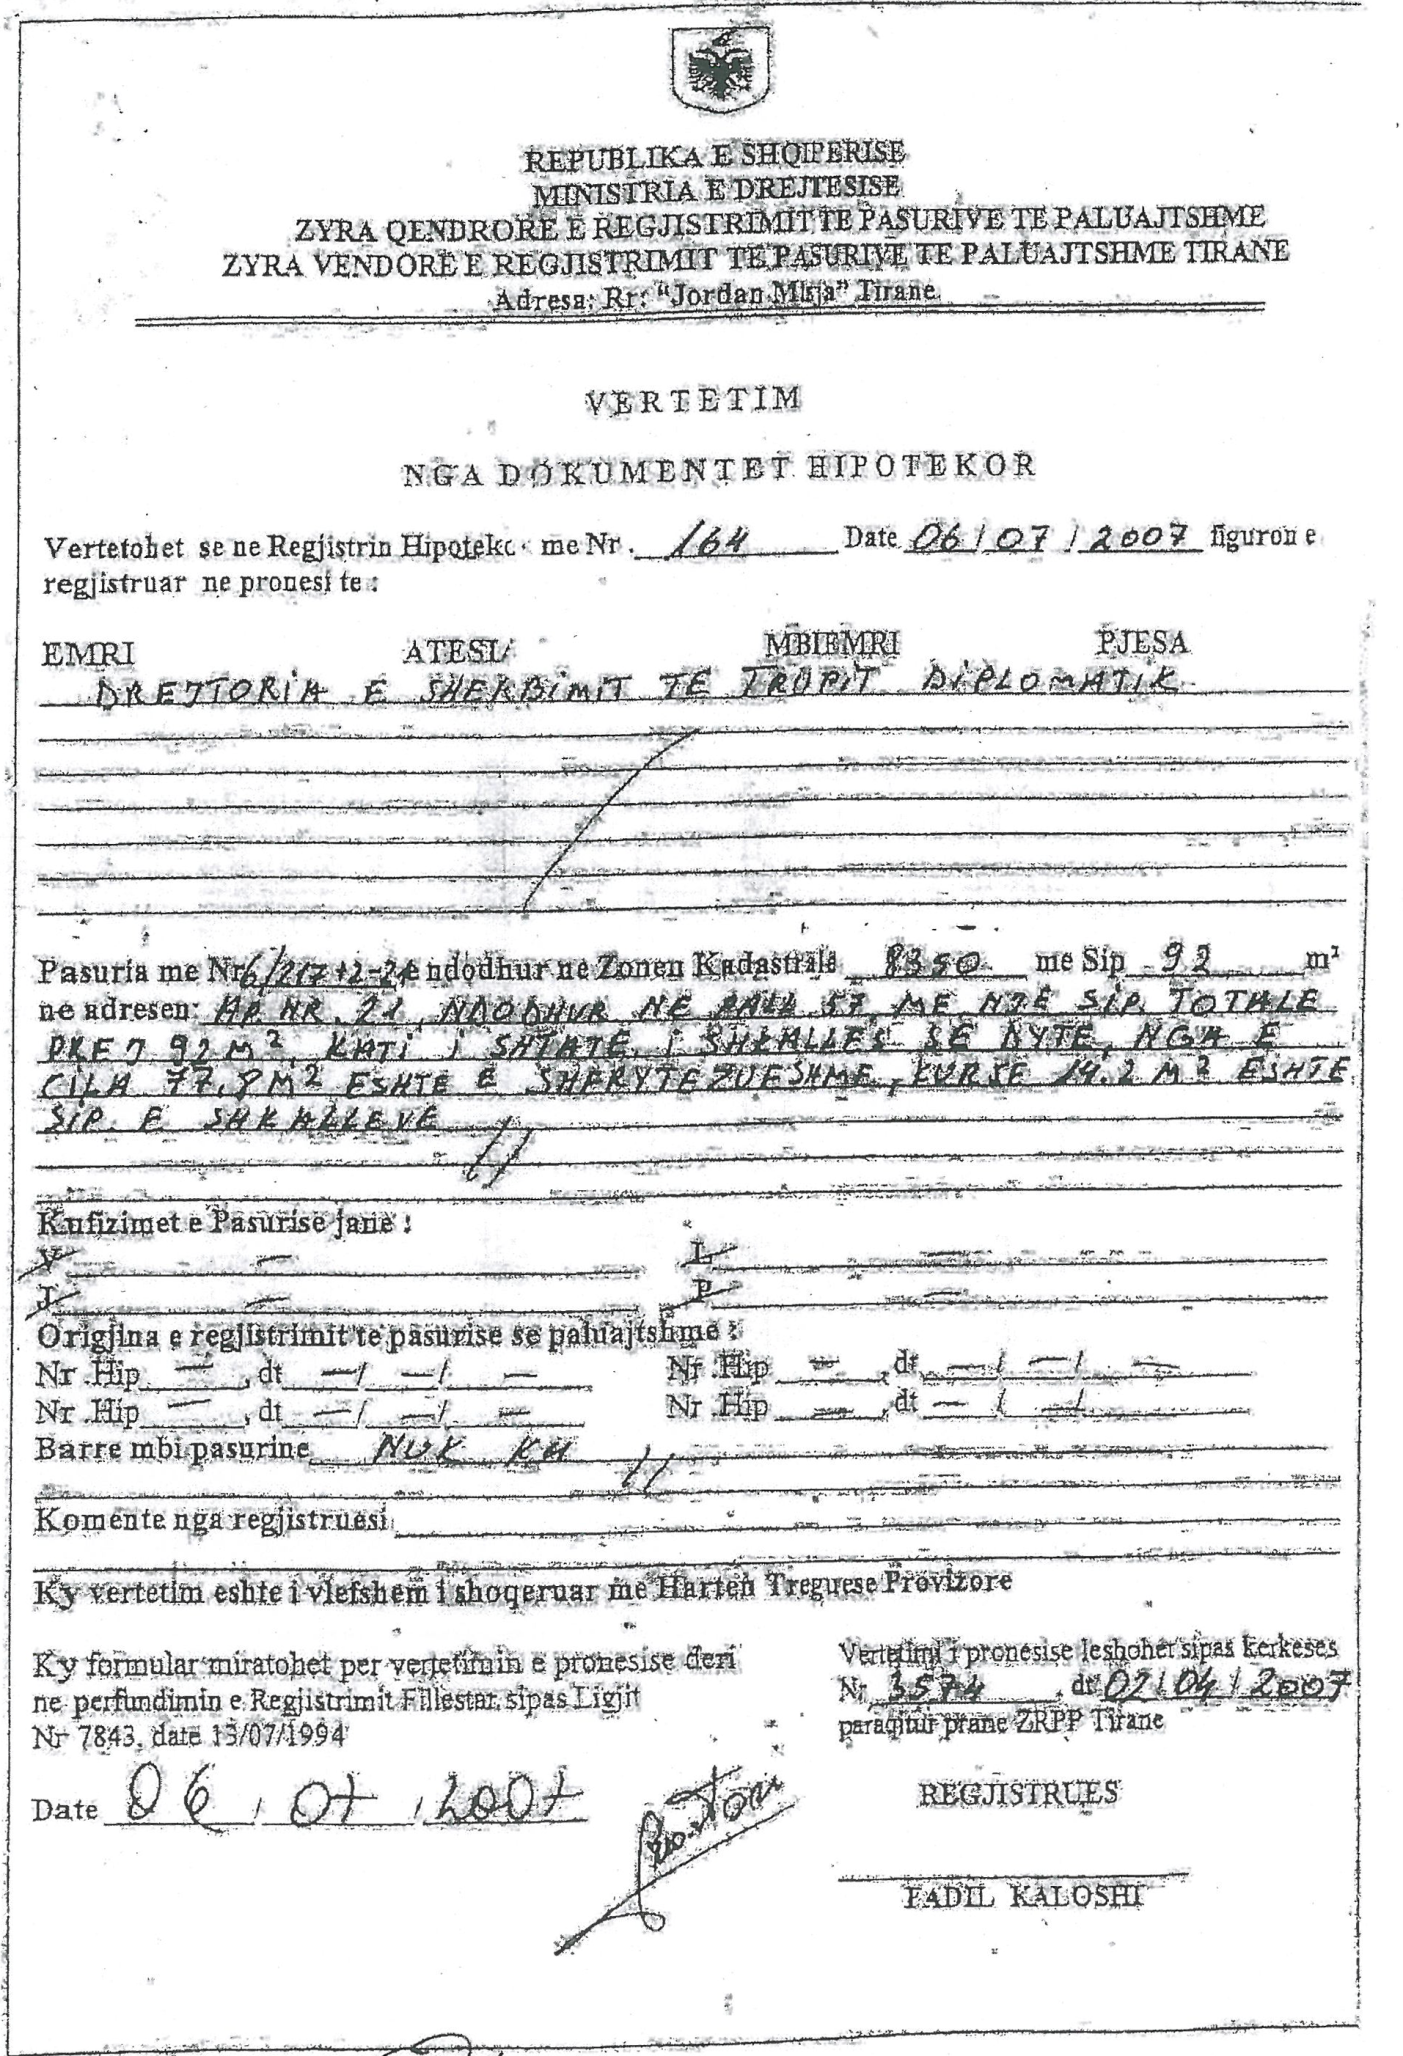 REPUBLIKA E SHQIPERISE
MINISTRIA E DREJTESISE
ZYRA QENDRORE E REGJISTRIMIT TE PASURIVE TE PALUAJTSHME
ZYRA VENDORE E REGJISTRIMIT TE PASURIVE TE PALUAJTSHME TIRANE
Adresa: Rr: "Jordan Misja" Tirane
VERTETIM
NGA DOKUMENTET HIPOTEKOR
Vertetohet se ne Regjistrin Hipoteko me Nr. 164 Date 06 / 07 / 2007 figuron e
regjistruar ne pronesi te :
EMRI ATESI MBIEMRI PJESA
DREJTORIA E SHERBIMIT TE TRUPIT DIPLOMATIK
Pasuria me Nr 6/217+2-21 e ndodhur ne Zonen Kadastrale 8390 me Sip 92 m²
ne adresen: AP. NR. 21, NDODHUR NE PALL 57, ME NJE SIP. TOTALE
PREJ 92 M², KATI I SHTATE, I SHKALLES SE DYTE, NGA E
CILA 77.8 M² ESHTE E SHFRYTEZUESHME, KURSE 14.2 M² ESHTE
SIP. E SHKALLEVE
Kufizimet e Pasurise jane :
V — L —
J — P —
Origjina e regjistrimit te pasurise se paluajtshme :
Nr .Hip — , dt — / — / — Nr .Hip — , dt — / — / —
Nr .Hip — , dt — / — / — Nr .Hip — , dt — / — /
Barre mbi pasurine NUK KA
Komente nga regjistruesi
Ky vertetim eshte i vlefshem i shoqeruar me Harten Treguese Provizore
Ky formular miratohet per vertetimin e pronesise deri
ne perfundimin e Regjistrimit Fillestar sipas Ligjit
Nr 7843, date 13/07/1994
Date 06 / 07 / 2007
Vertetimi i pronesise leshohet sipas kerkeses
Nr 3574 , dt 02 / 04 / 2007
paraqitur prane ZRPP Tirane
REGJISTRUES
FADIL KALOSHI